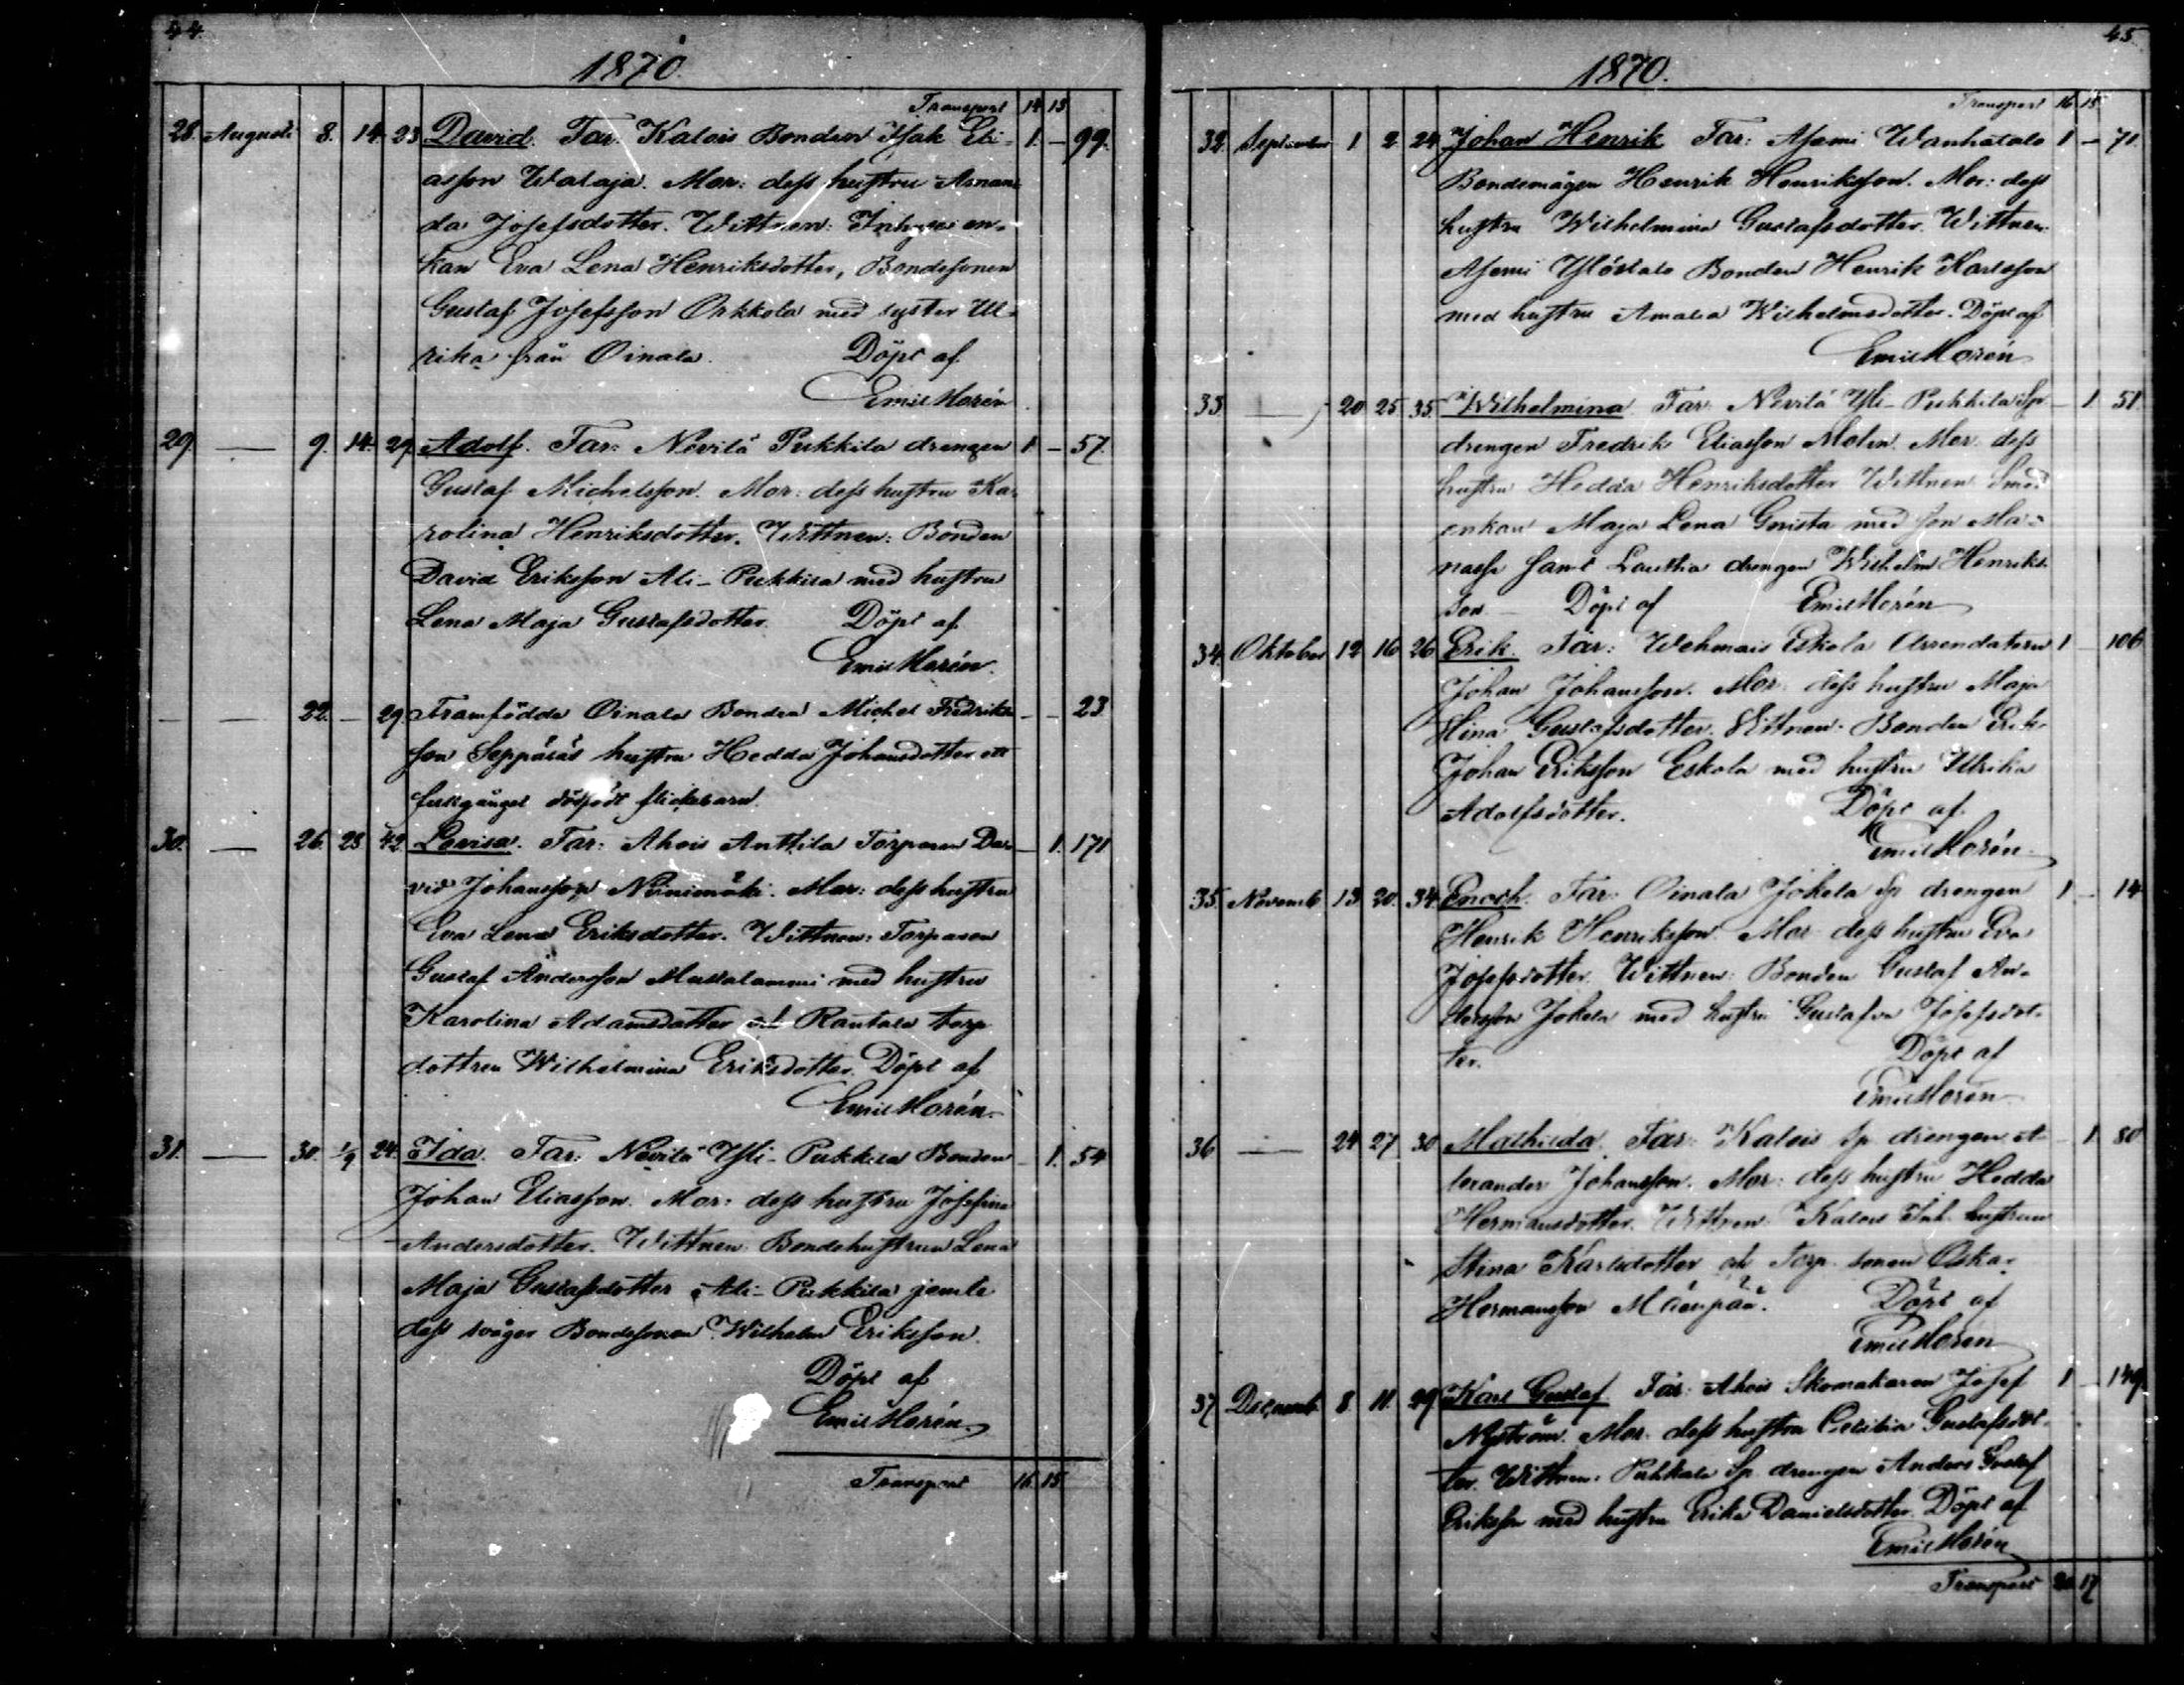 44.
1870.
Transport 14 13
28. Augusti 8. 14. 23 David. Far: Kalois Bonden Isak Eli- 1. - 99.
asson Wataja. Mor: dess hustru Aman-
da Josefsdotter. Wittnen: Inhyses en-
kan Eva Lena Henriksdotter, Bondesonen
Gustaf Josefsson Orkkola med syster Ul-
rika från Oinala. Döpt af
Emil Morén
29. — 9. 14. 29 Adolf. Far: Nevilä Pukkila drengen 1 - 57.
Gustaf Michelsson. Mor: dess hustru Ka-
rolina Henriksdotter. Wittnen: Bonden
David Eriksson Ali-Pukkila med hustru
Lena Maja Gustafsdotter. Döpt af
Emil Morén.
— — 22. — 29 Framfödde Oinala Bonden Michel Fredriks- - - 23
son Seppäläs hustru Hedda Johansdotter ett
fullgånget dödfödt flickebarn.
30. — 26. 28 42 Lovisa. Far: Ahois Anttila Torparen Da- - 1. 171
vid Johansson Niinimäki. Mor: dess hustru
Eva Lena Eriksdotter. Wittnen: Torparen
Gustaf Andersson Mustalammi med hustru
Karolina Adamsdotter och Rantala torp.
dottren Wilhelmina Eriksdotter. Döpt af
Emil Morén.
31. — 30. 1/9 24. Ida. Far: Nevilä Yli-Pukkila Bonden - 1. 54
Johan Eliasson. Mor: dess hustru Josefina
Andersdotter. Wittnen: Bondehustrun Lena
Maja Gustafsdotter Ali-Pukkila jemte
dess svåger Bondesonen Wilhelm Eriksson.
Döpt af
Emil Morén.
Transport 16 15
45.
1870.
Transport 16 15
32. September 1 2 24 Johan Henrik Far: Asemi Wanhatalo 1 - 71.
Bondemågen Henrik Henriksson. Mor: dess
hustru Wilhelmina Gustafsdotter. Wittnen:
Asemi Ylöstalo Bonden Henrik Karlsson
med hustru Amalia Wilhelmsdotter. Döpt af
Emil Morén
33 — 20 25 35 Wilhelmina. Far: Nevilä Yli-Pukkila Sp - 1 51
drengen Fredrik Eliasson Molin. Mor: dess
hustru Hedda Henriksdotter. Wittnen: Smed
enkan Maja Lena Gnista med son Ma-
nasse samt Lauttia drengen Wilhelm Henriks-
son — Döpt af Emil Morén
34. Oktober 12 16 26 Erik. Far: Wehmais Eskola Arrendatorn 1 - 106
Johan Johansson. Mor: dess hustru Maja
Stina Gustafsdotter. Wittnen: Bonden Erik
Johan Eriksson Eskola med hustru Ulrika
Adolfsdotter. Döpt af
Emil Morén.
35. Novemb. 13 20. 34 Enoch. Far: Oinala Jokela Sp drengen 1 - 14
Henrik Henriksson. Mor: dess hustru Eva
Josefsdotter. Wittnen: Bonden Gustaf An-
dersson Jokela med hustru Gustafva Josefsdot-
ter. Döpt af
Emil Morén
36 — 24 27 30 Mathilda. Far: Kalois Sp. drengen A- - 1. 80
lexander Johansson. Mor: dess hustru Hedda
Hermansdotter. Wittnen: Kalois Inh. hustrun
Stina Karlsdotter och Torp. sonen Oskar
Hermansson Mäenpää. Döpt af
Emil Morén
37 Decemb. 8 11. 29 Karl Gustaf Far: Ahois Skomakaren Josef 1 - 149
Nyström. Mor: dess hustru Cecilia Gustafsdot-
ter. Wittnen: Pukkala Sp. drengen Anders Gustaf
Eriksson med hustru Erika Danielsdotter. Döpt af
Emil Morén
Transport 20 17